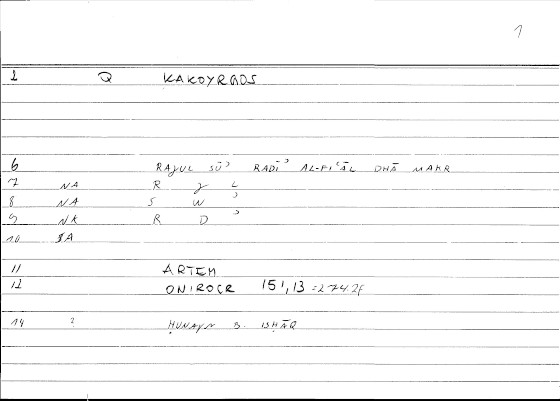 1
1 Q KAKOYRGOS
6 RAǦUL SŪʾ RADĪʾ AL-FIʿĀL DHĀ MAKR
7 NA R ǧ L
8 NA S W ʾ
9 NK R D ʾ
10 SA
11 ARTEM
12 ONIROCR 151,13 = 274.
14 ? ḤUNAYN B. ISḤĀQ